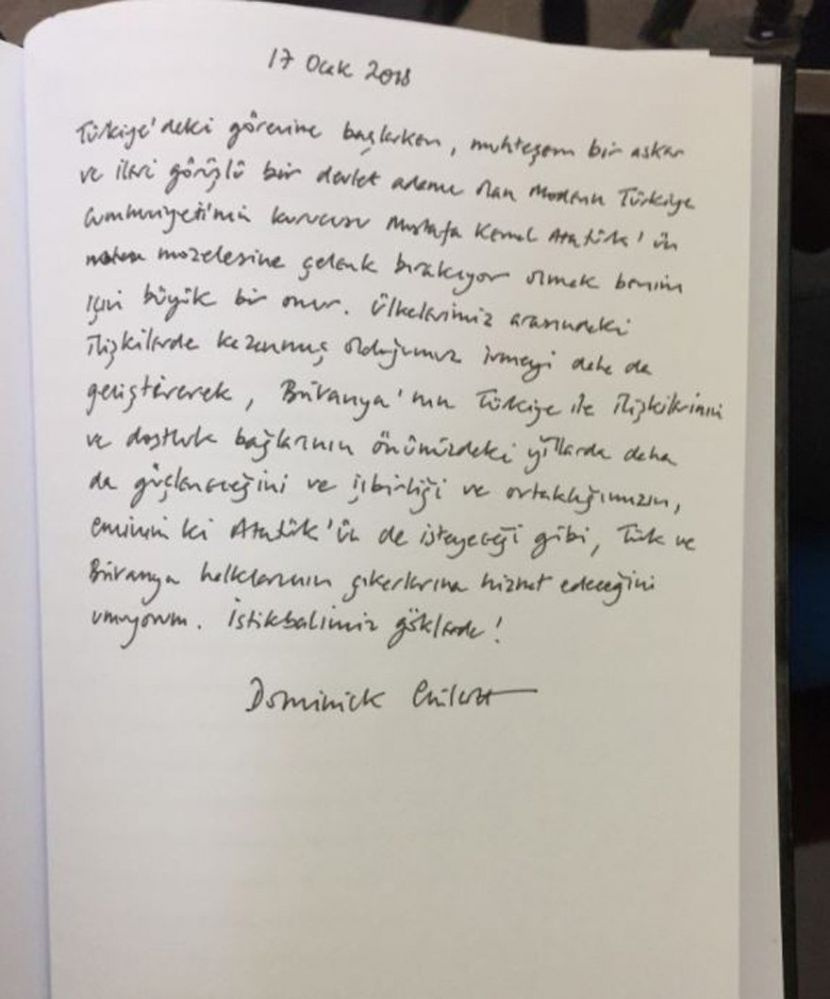 17 Ocak 2018
Türkiye'deki görevime başlarken, muhteşem bir asker
ve ileri görüşlü bir devlet adamı olan Modern Türkiye
Cumhuriyeti'nin kurucusu Mustafa Kemal Atatürk'ün
mozelesine çelenk bırakıyor olmak benim
için büyük bir onur. Ülkelerimiz arasındaki
ilişkilerde kazanmış olduğumuz ivmeyi daha da
geliştirerek, Britanya'nın Türkiye ile ilişkilerinin
ve dostluk bağlarının önümüzdeki yıllarda daha
da güçleneceğini ve işbirliği ve ortaklığımızın,
eminim ki Atatürk'ün de isteyeceği gibi, Türk ve
Britanya halklarının çıkarlarına hizmet edeceğini
umuyorum. İstikbalimiz göklerde!
Dominick Chilcott